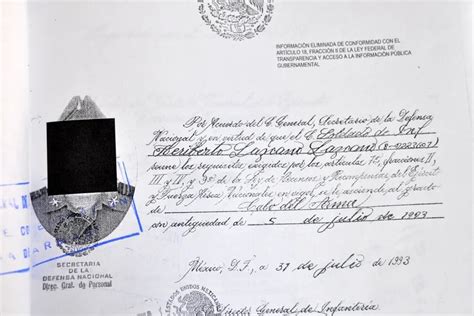 INFORMACIÓN ELIMINADA DE CONFORMIDAD CON EL
ARTÍCULO 18, FRACCIÓN II DE LA LEY FEDERAL DE
TRANSPARENCIA Y ACCESO A LA INFORMACIÓN PÚBLICA
GUBERNAMENTAL
Por Acuerdo del C. General, Secretario de la Defensa
Nacional y en virtud de que el C. Soldado de Inf
Heriberto Lazcano Lazcano
reúne los requisitos exigidos por los artículos 7º, fracciones II,
III y IV, de la Ley de Ascensos y Recompensas del Ejército
y Fuerza Aérea Nacionales se le asciende al grado
de Cabo del Arma
con antigüedad de 5 de julio de 1993
SECRETARIA
DE LA
DEFENSA NACIONAL
Direc. Gral. de Personal
México, D.F., a 31 de julio de 1993
ESTADOS UNIDOS MEXICANOS
General de Infantería